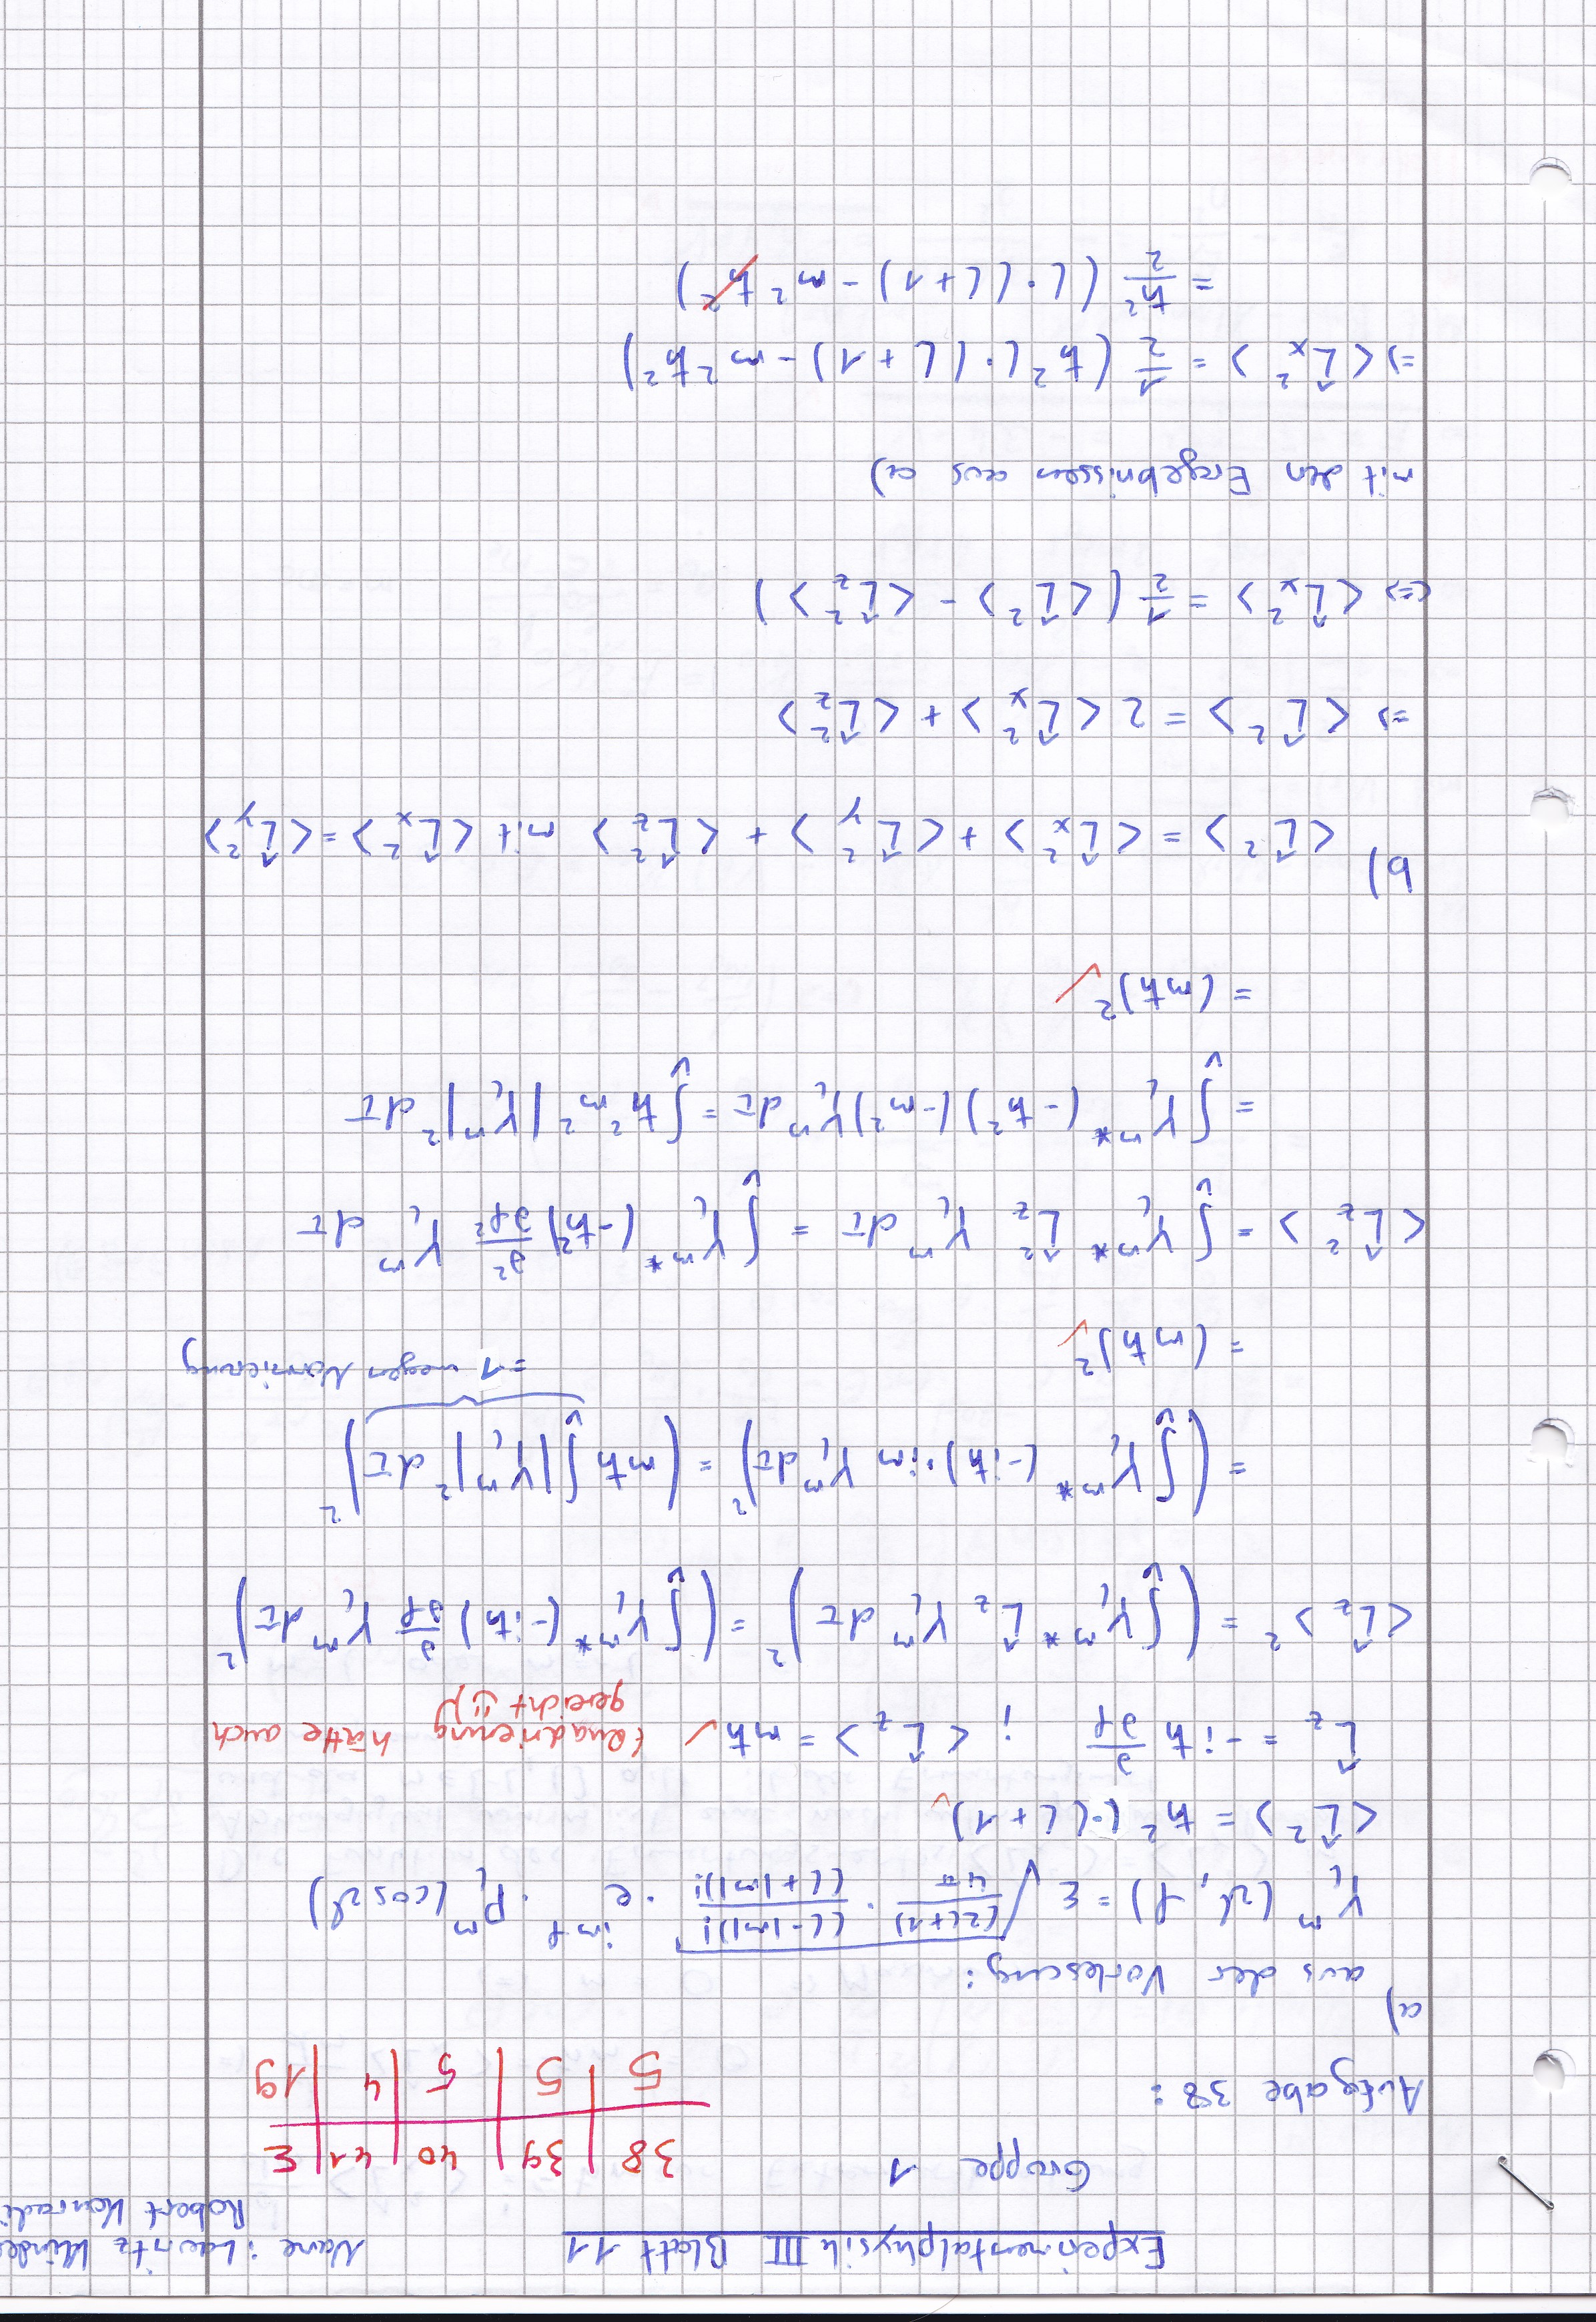 Experimentalphysik III Blatt 11
Name: Lauritz Klinde
Robert Konradi
Gruppe 1
38 | 39 | 40 | 41 | Σ
5 | 5 | 5 | 4 | 19
Aufgabe 38:
a)
aus der Vorlesung:
Y_l^m (ϑ, φ) = ε √((2l+1)/4π · (l-|m|)!/(l+|m|)!) · e^{imφ} · P_l^m (cos ϑ)
<L̂²> = ħ² l·(l+1) ✓
L̂_z = -iħ ∂/∂φ ; <L̂_z> = mħ ✓ (Quadrierung hätte auch
gereicht ☺)
<L̂_z>² = (∫_V Y_l^{m*} L̂_z Y_l^m dτ)² = (∫_V Y_l^{m*} (-iħ) ∂/∂φ Y_l^m dτ)²
= (∫_V Y_l^{m*} (-iħ)·im Y_l^m dτ)² = (mħ ∫_V |Y_l^m|² dτ)²
= 1 wegen Normierung
= (mħ)² ✓
<L̂_z²> = ∫_V Y_l^{m*} L̂_z² Y_l^m dτ = ∫_V Y_l^{m*} (-ħ²) ∂²/∂φ² Y_l^m dτ
= ∫_V Y_l^{m*} (-ħ²)(-m²) Y_l^m dτ = ∫_V ħ²m² |Y_l^m|² dτ
= (mħ)² ✓
b)
<L̂²> = <L̂_x²> + <L̂_y²> + <L̂_z²> mit <L̂_x²> = <L̂_y²>
=> <L̂²> = 2 <L̂_x²> + <L̂_z²>
<=> <L̂_x²> = 1/2 (<L̂²> - <L̂_z²>)
mit den Ergebnissen aus a)
=> <L̂_x²> = 1/2 (ħ² l·(l+1) - m²ħ²)
= ħ²/2 (l·(l+1) - m² ħ²)